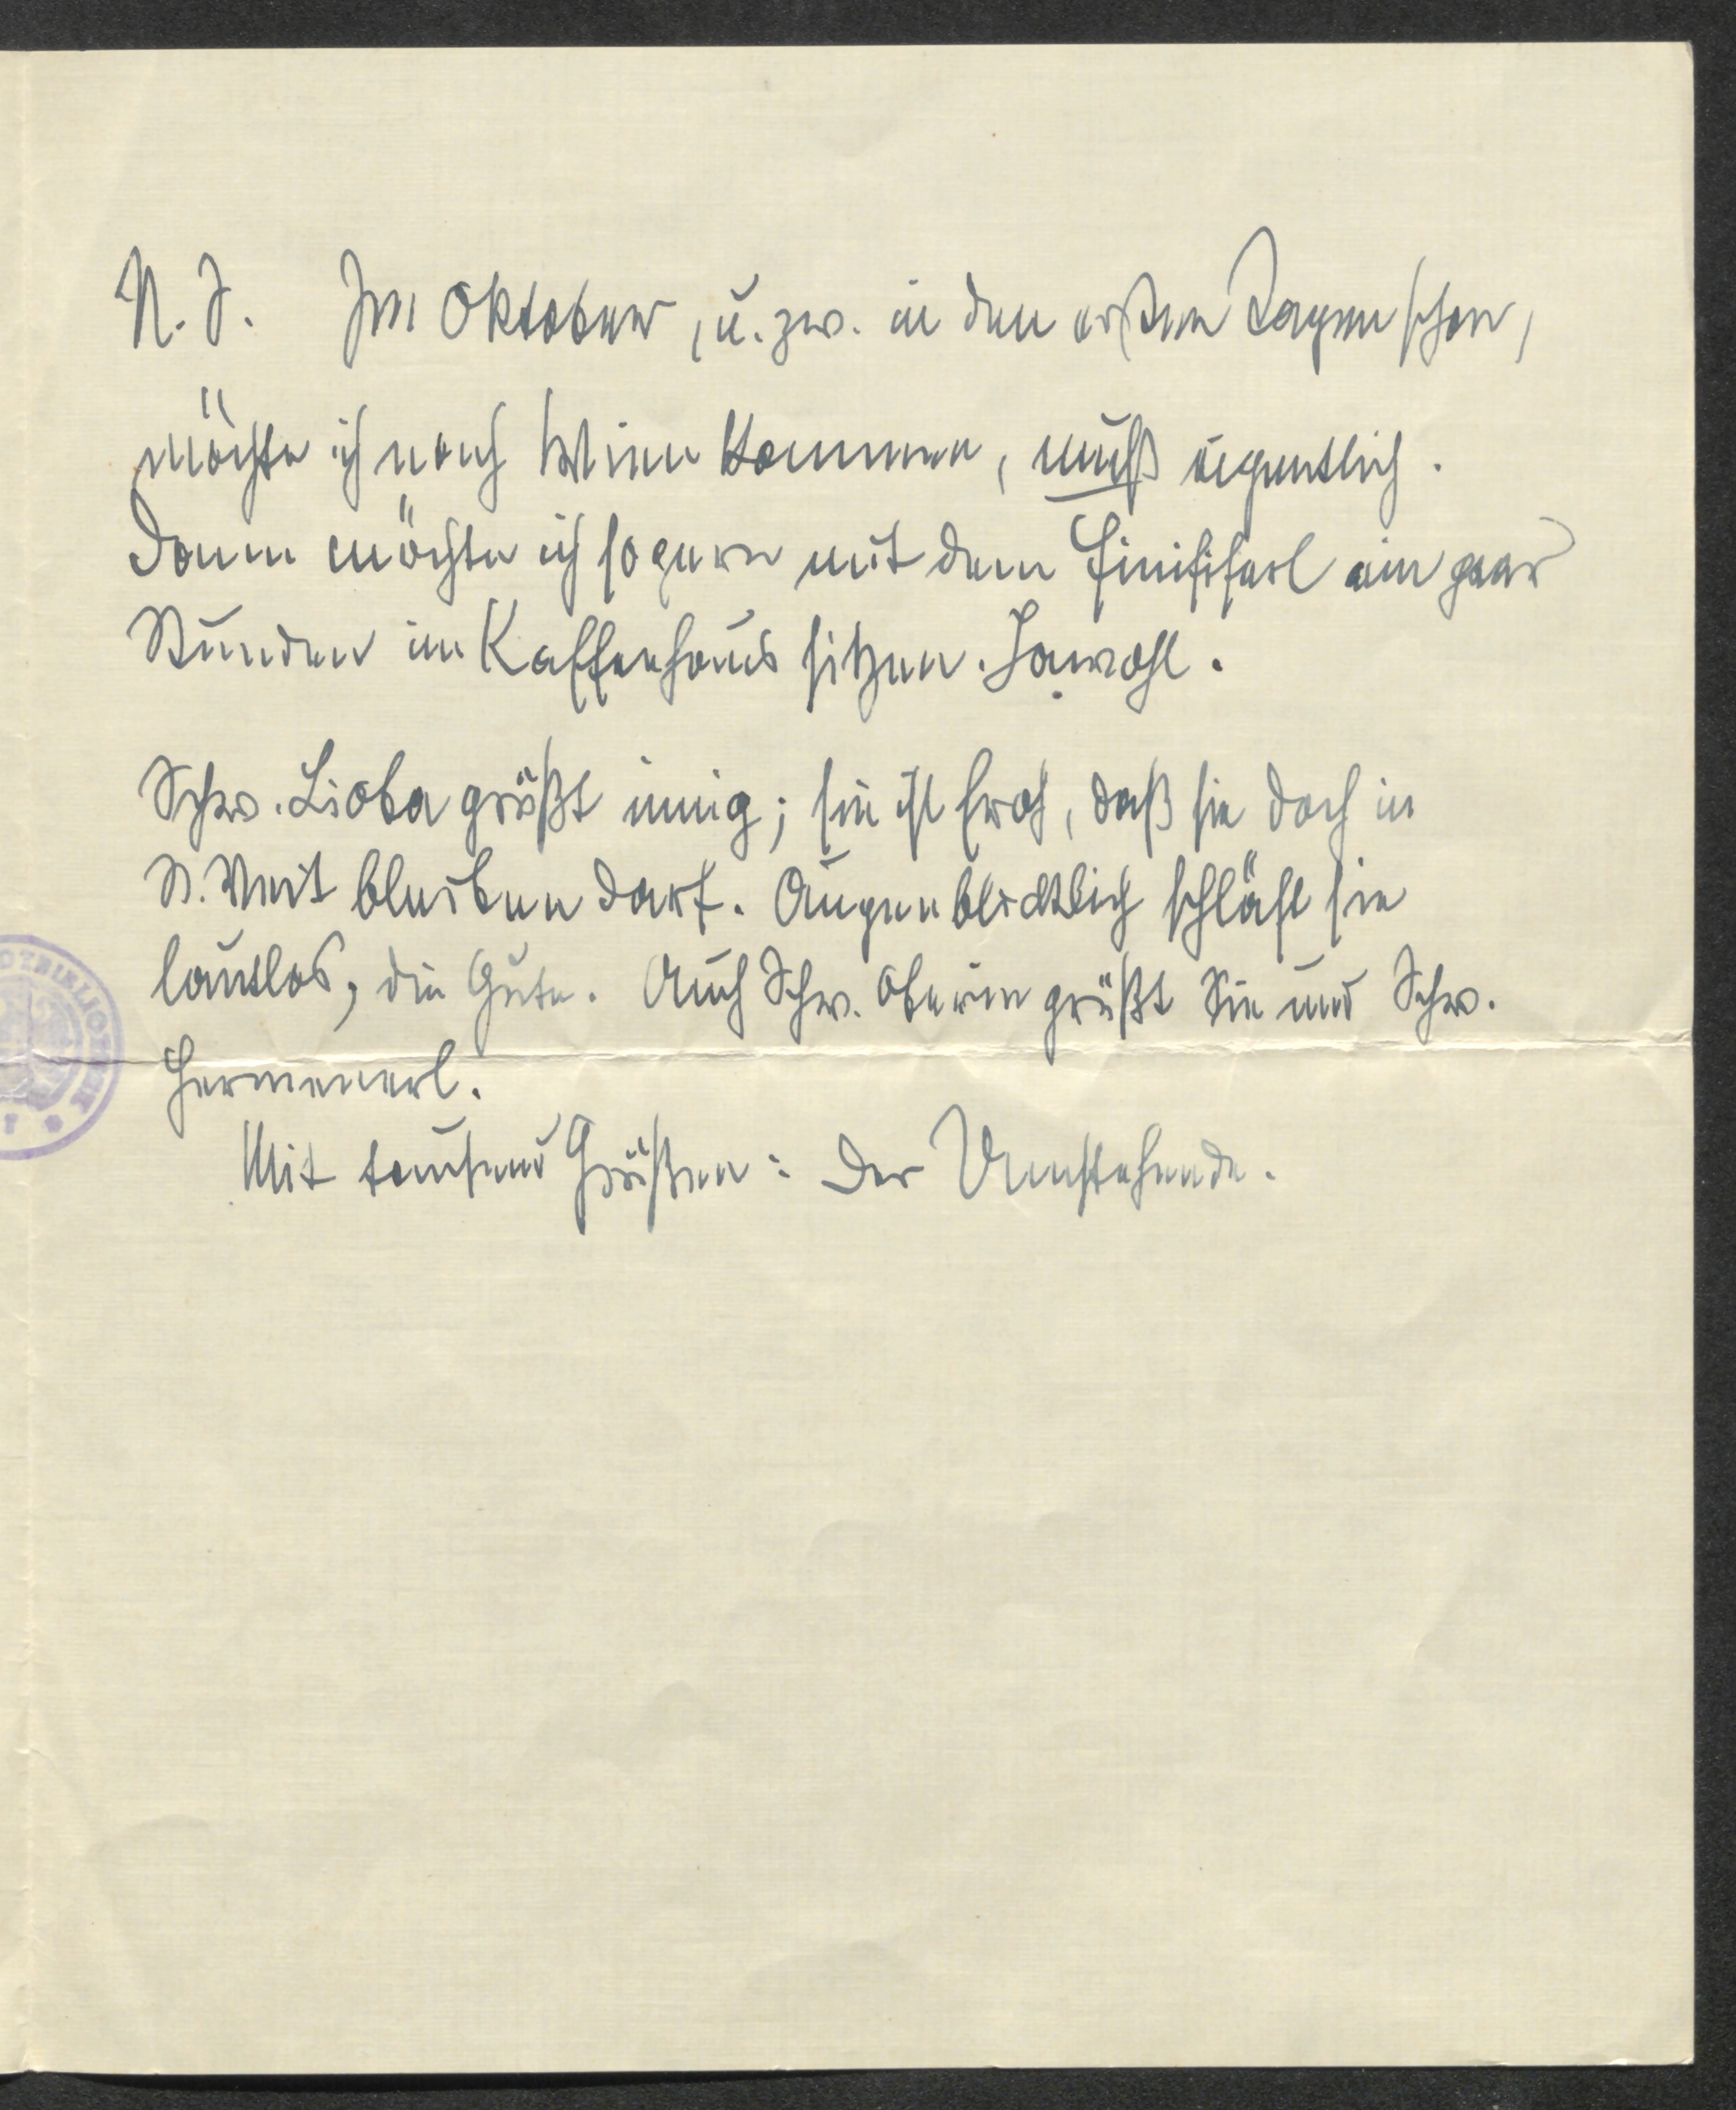 N. J. Im Oktober, u. zw. in den ersten Tagen schon,
möchte ich nach Wien kommen, muß eigentlich.
Dann möchte ich so gern mit dem ein paar
Stunden im Kaffeehaus sitzen. Jawohl.
Schw. Lioba grüßt innig; sie ist froh, daß sie doch in
S. Veit bleiben darf. Augenblicklich schläft sie
lautlos, die Gute. Auch Schw. Oberin grüßt Sie und Schw.
Hermenerl.
Mit tausend Grüßen: Der Umstehende.